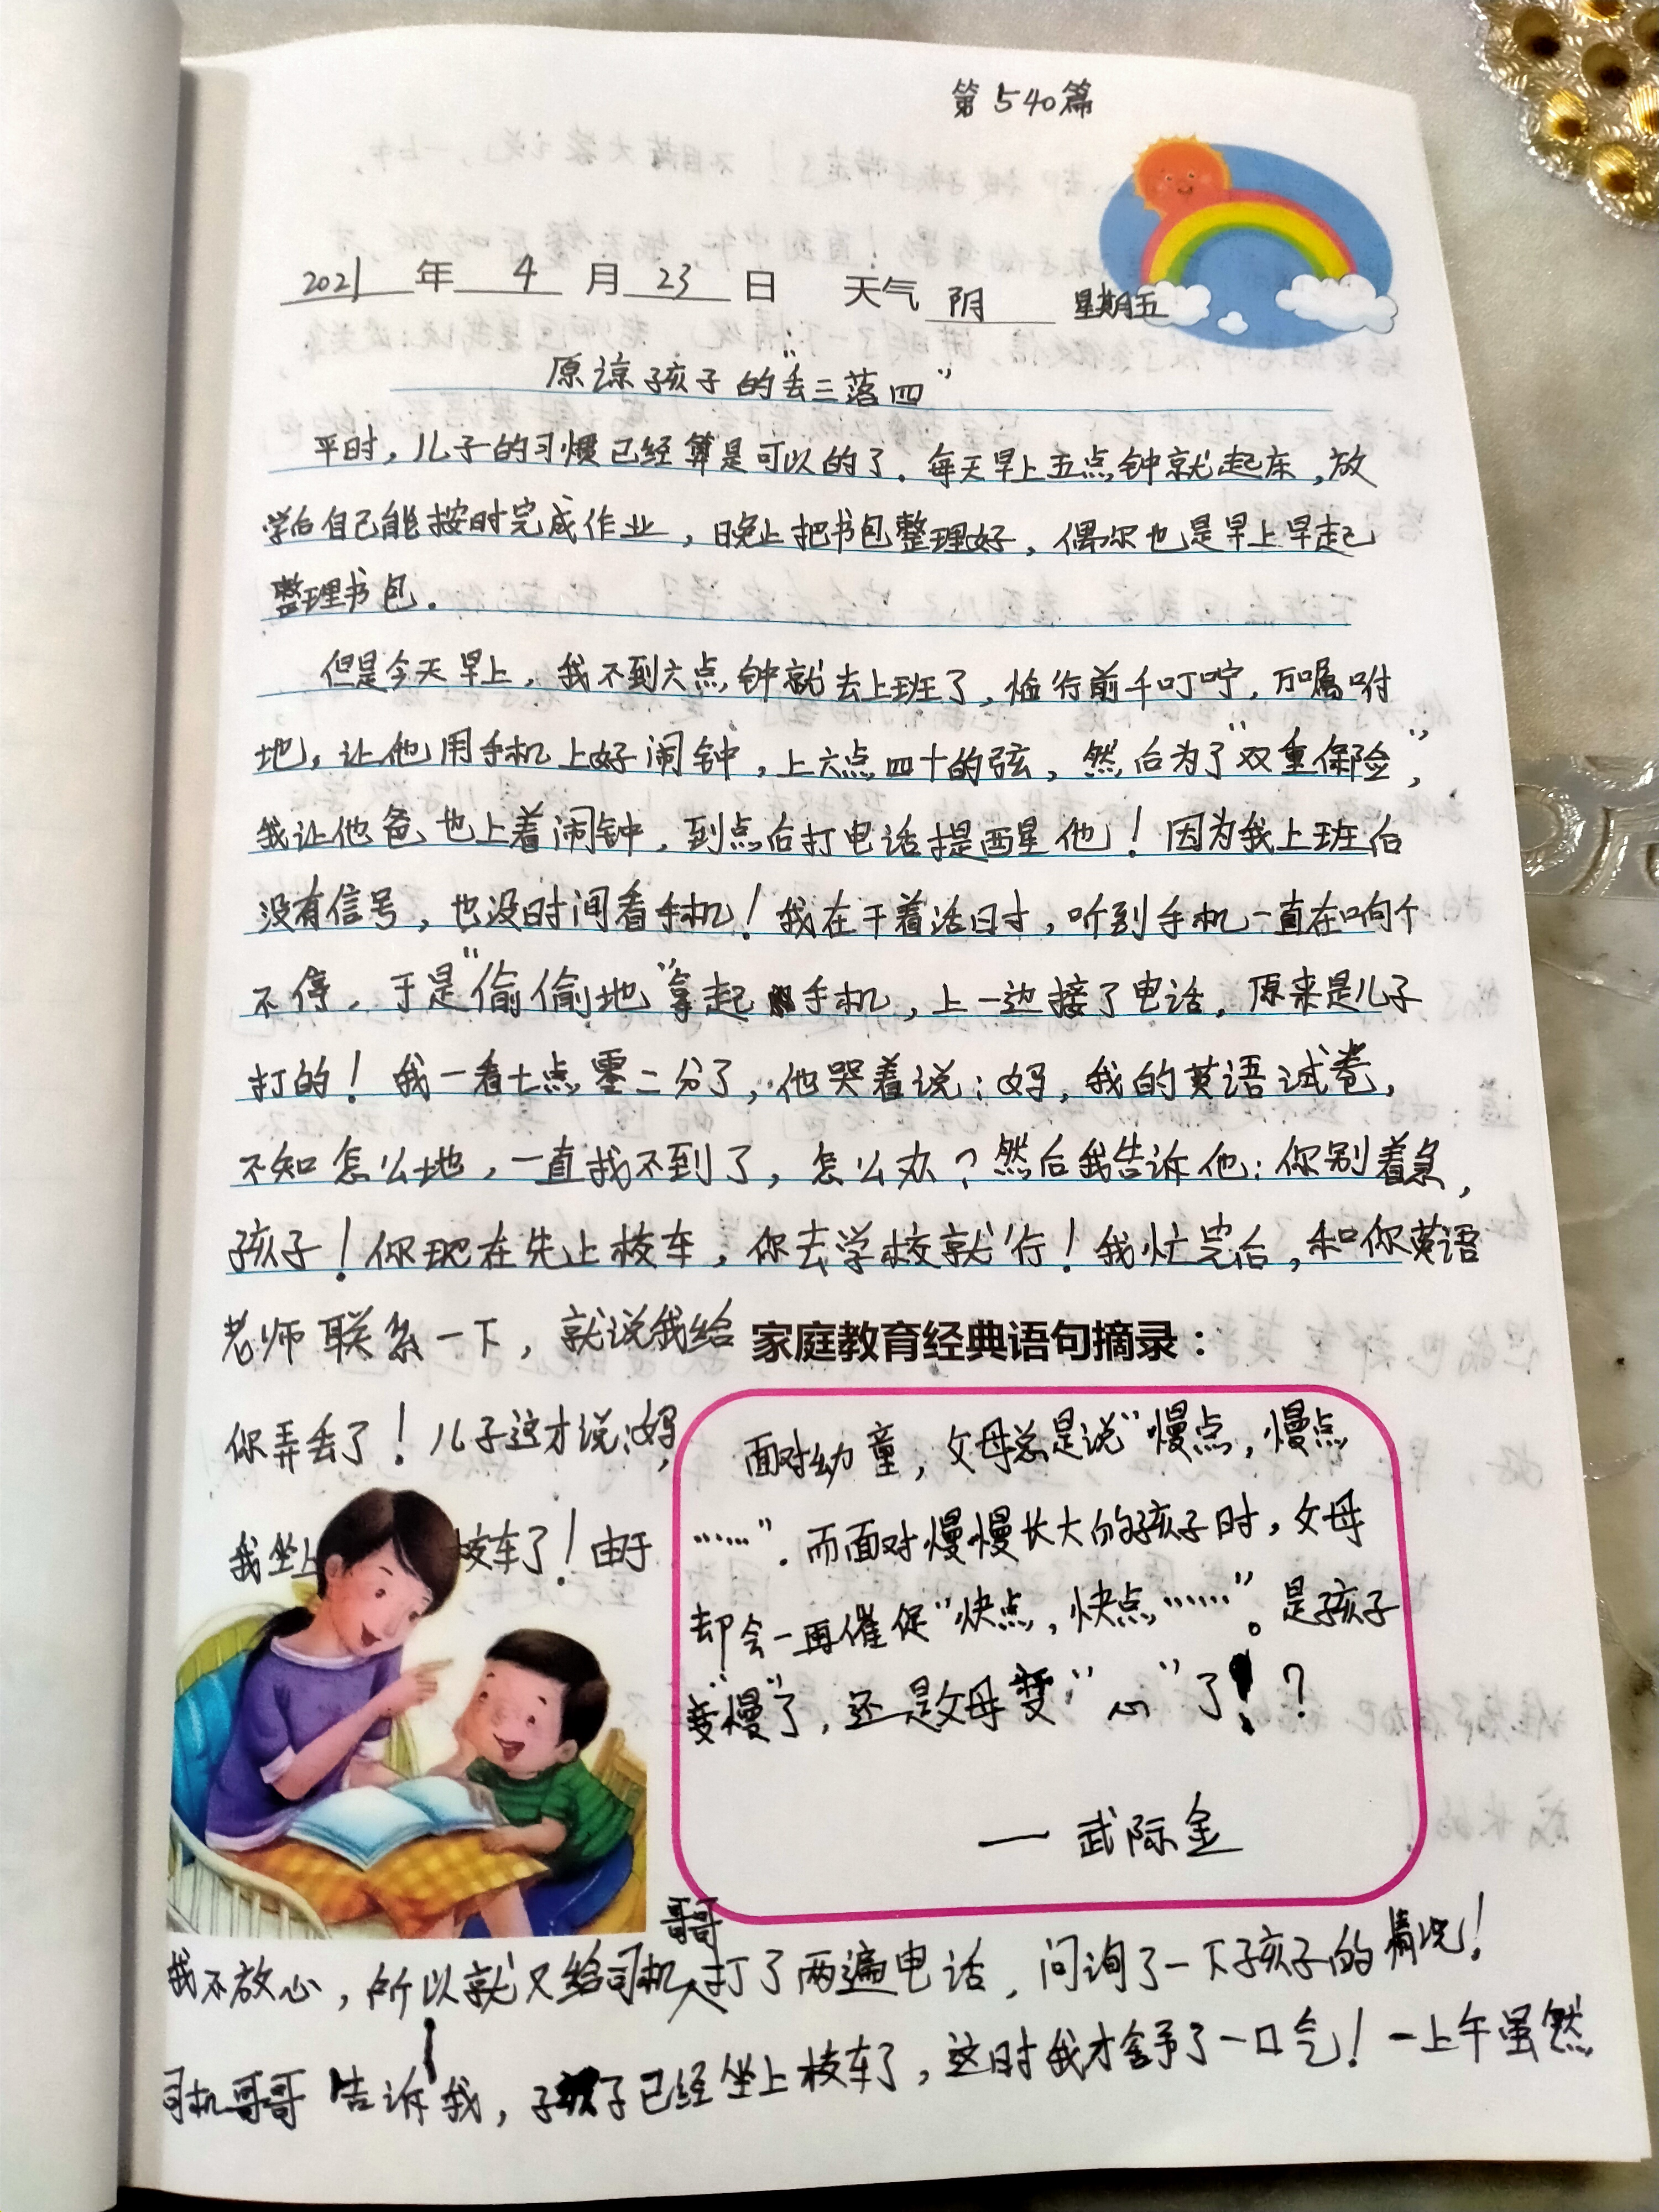 第540篇
2021年4月23日 天气 阴 星期五
原谅孩子的“丢三落四”
平时，儿子的习惯已经算是可以的了。每天早上五点钟就起床，放
学后自己能按时完成作业，晚上把书包整理好，偶尔也是早上早起
整理书包。
但是今天早上，我不到六点钟就去上班了，临行前千叮咛，万嘱咐
地，让他用手机上好闹钟，上六点四十的弦，然后为了“双重保险”，
我让他爸也上着闹钟，到点后打电话提醒他！因为我上班后
没有信号，也没时间看手机！我在干着活时，听到手机一直在响个
不停，于是“偷偷地”拿起手机，上一边接了电话，原来是儿子
打的！我一看七点零二分了，他哭着说：妈，我的英语试卷，
不知怎么地，一直找不到了，怎么办？然后我告诉他：你别着急，
孩子！你现在先上校车，你去学校就行！我忙完后，和你英语
老师联系一下，就说我给
你弄丢了！儿子这才说：妈，
我坐上校车了！由于
家庭教育经典语句摘录：
面对幼童，父母总是说“慢点，慢点
……”。而面对慢慢长大的孩子时，父母
却会一再催促“快点，快点……”。是孩子
变“慢”了，还是父母变“心”了？
— 武际金
我不放心，所以就又给司机哥哥打了两遍电话，问询了一下孩子的情况！
司机哥哥告诉我，孩子已经坐上校车了，这时我才舒了一口气！一上午虽然